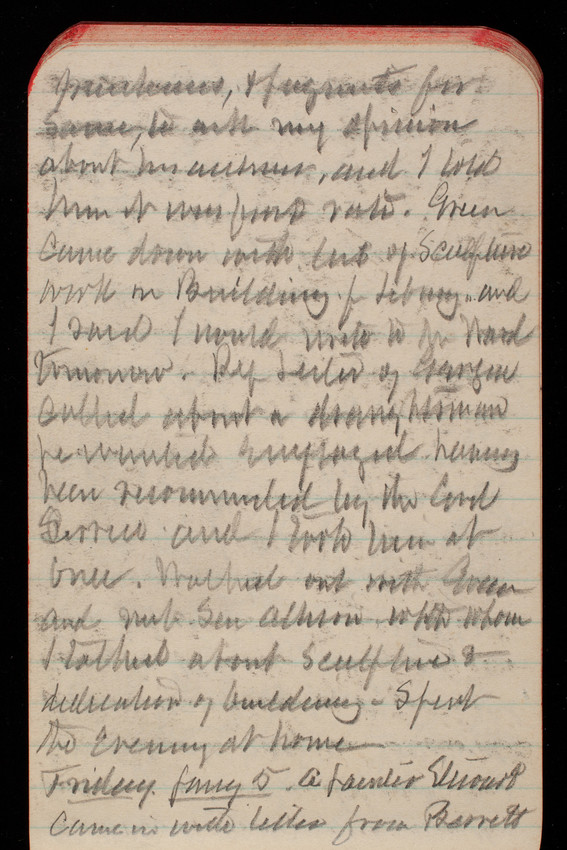 & for
same, to ask my opinion
about , and I told
him it was rate. Green
came down with list of Sculpture
work on Building f Library and
I said I would write to Mr Ward
tomorrow. Rep Lester of Georgia
called about a draughtsman
he wanted employed having
been recommended by the Civil
Service and I took him at
once. Walked out with Green
and met Sen Allison with whom
I talked about Sculpture &
dedication of building - Spent
the Evening at home
Friday Jany 5. A painter Stewart
came in with letter from Barrett